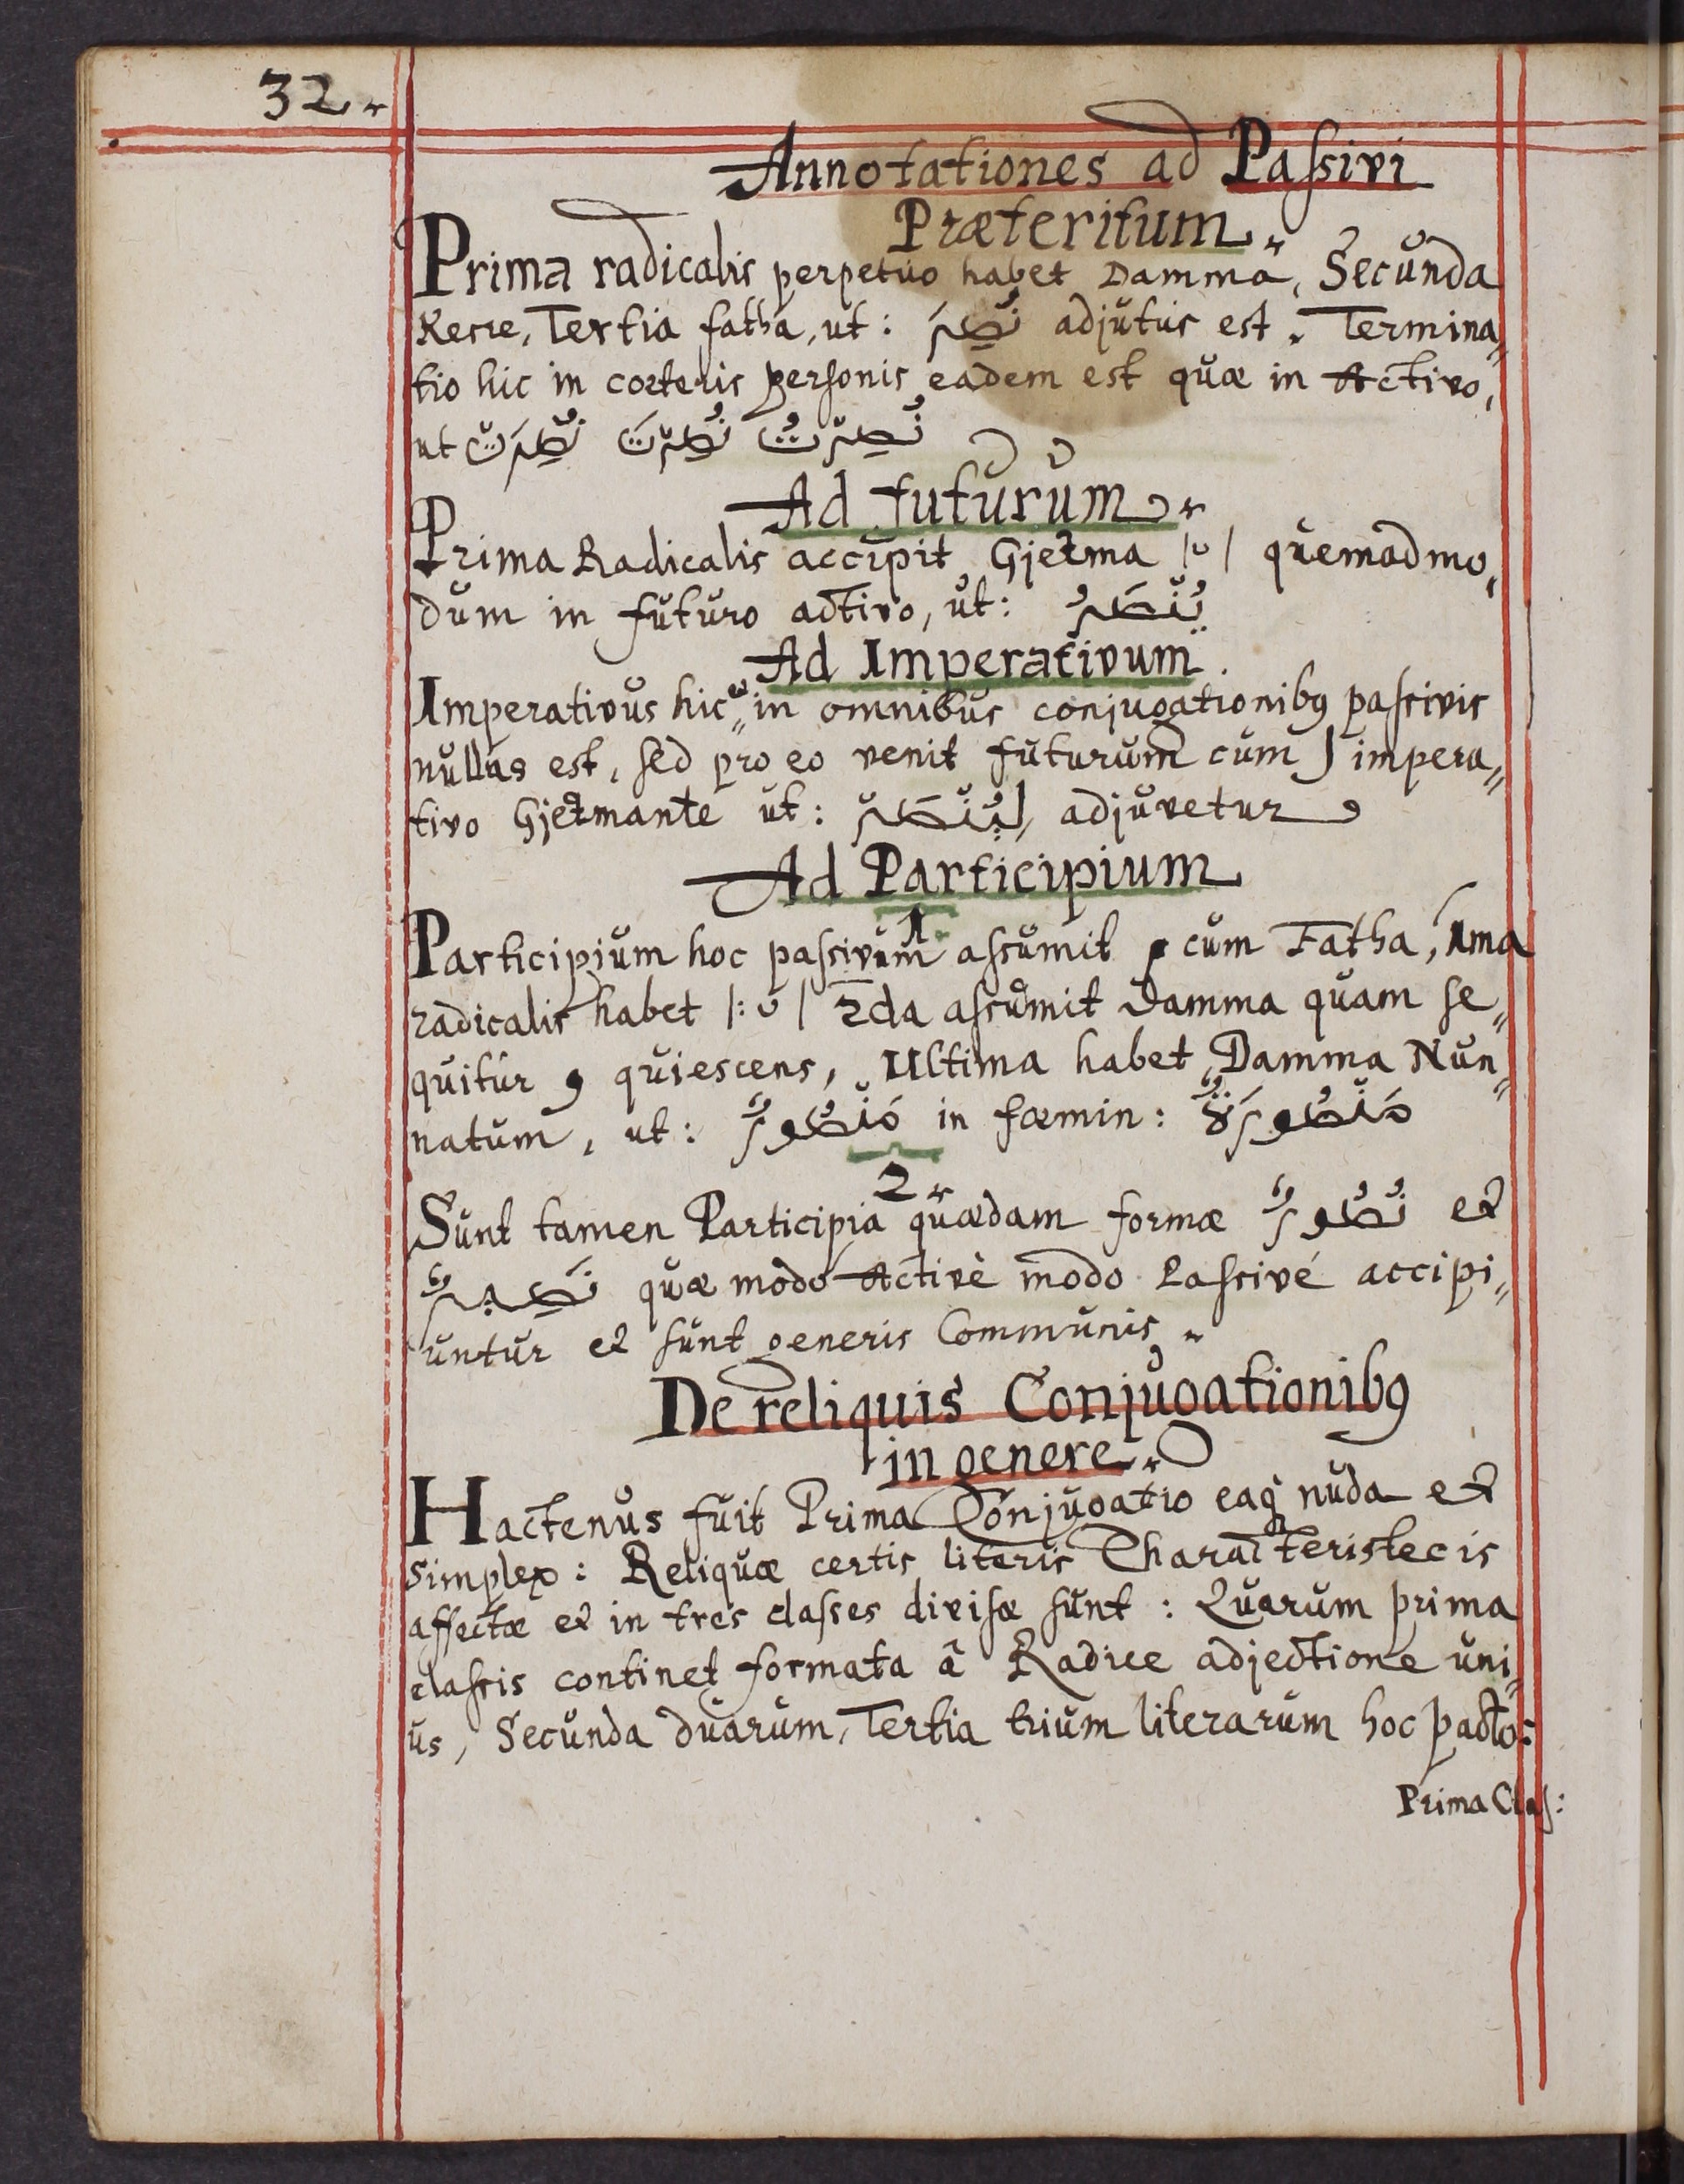 32.
Annotationes ad Passivi
Præteritum.
Prima radicalis perpetuo habet Damma, Secunda
Kesre, Tertia fatha, ut: نُصِرَ adjutus est. Termina„
tio hic in cœteris personis eadem est quæ in Activo,
ut نُصِرَتْ نُصِرْتَ نُصِرْتُ
Ad futurum.
Prima Radicalis accipit Gjezma |ں| quemadmo„
dum in futuro activo, ut: يُنْصَرُ
Ad Imperativum.
Imperativus hic „in omnibus conjugationibꝰ passivis
nullus est, sed pro eo venit futurum cum ل impera„
tivo Gjezmante ut: لِيُنْصَرْ adjuvetur
Ad Participium
1.
Participium hoc passivum assumit م cum Fatha, 1ma
radicalis habet |: ں | 2da assumit Damma quam se„
quitur و quiescens, Ultima habet Damma Nun„
natum, ut: مَنْصُورٌ in fœmin: مَنْصُورَةٌ
2.
Sunt tamen Participia quædam formæ نُصُورٌ et
نَصِيرٌ quæ modo Activè modo Passivé accipi„
untur et sunt generis Communis.
De reliquis Conjugationibꝰ
in genere.
Hactenus fuit Prima Conjugatio eaq́ nuda et
simplex: Reliquæ certis literis Characteristecis
affectæ et in tres classes divisæ sunt: Quarum prima
classis continet formata â Radice adjectione uni„
us, Secunda duarum, Tertia trium literarum hoc pacto:
Prima Clas: